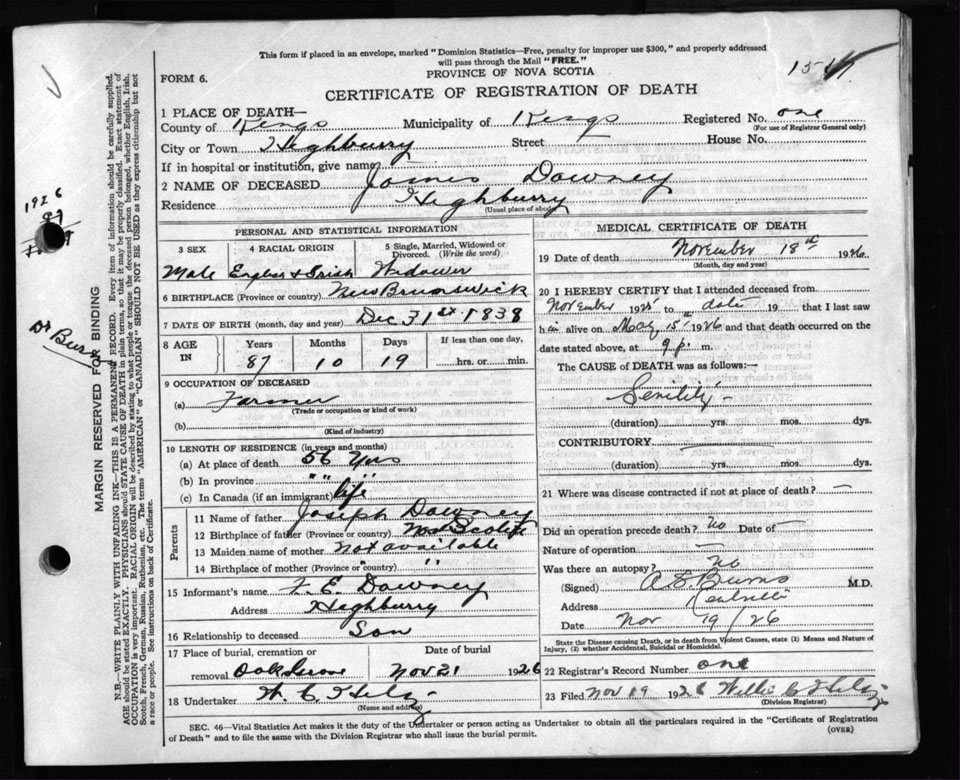 This form if placed in an envelope, marked "Dominion Statistics—Free, penalty for improper use $300," and properly addressed
will pass through the Mail "FREE."
FORM 6.
PROVINCE OF NOVA SCOTIA
CERTIFICATE OF REGISTRATION OF DEATH
1 PLACE OF DEATH—
County of Kings Municipality of Kings Registered No. one
(For use of Registrar General only)
City or Town Highburry Street House No.
If in hospital or institution, give name
2 NAME OF DECEASED James Downey
Residence Highburry
(Usual place of abode)
PERSONAL AND STATISTICAL INFORMATION
3 SEX 4 RACIAL ORIGIN 5 Single, Married, Widowed or Divorced. (Write the word)
Male English & Irish Widower
6 BIRTHPLACE (Province or country) New Brunswick
7 DATE OF BIRTH (month, day and year) Dec 31st 1838
8 AGE IN Years Months Days If less than one day,
87 10 19 hrs. or min.
9 OCCUPATION OF DECEASED
(a) Farmer
(Trade or occupation or kind of work)
(b)
(Kind of industry)
10 LENGTH OF RESIDENCE (in years and months)
(a) At place of death 56 Yrs
(b) In province " "
(c) In Canada (if an immigrant) life
Parents
11 Name of father Joseph Downey
12 Birthplace of father (Province or country)
13 Maiden name of mother Not available
14 Birthplace of mother (Province or country) " "
15 Informant's name E. Downey
Address Highburry
16 Relationship to deceased Son
17 Place of burial, cremation or removal Date of burial
Nov 21 1926
18 Undertaker W. C.
(Name and address)
MEDICAL CERTIFICATE OF DEATH
19 Date of death November 18th 1926
(Month, day and year)
20 I HEREBY CERTIFY that I attended deceased from
November 1925 to date 19 that I last saw
him alive on May 15th 1926 and that death occurred on
date stated above, at 9 p. m.
The CAUSE of DEATH was as follows:—
Senility —
(duration) yrs. mos. dys.
CONTRIBUTORY
(duration) yrs. mos. dys.
21 Where was disease contracted if not at place of death? —
Did an operation precede death? No Date of —
Nature of operation —
Was there an autopsy? No
(Signed) Burns M.D.
Address Kentville
Date Nov 19/26
State the Disease causing Death, or in death from Violent Causes, state (1) Means and Nature of
Injury, (2) whether Accidental, Suicidal or Homicidal.
22 Registrar's Record Number one
23 Filed Nov 19 1926 Willie C
(Division Registrar)
SEC. 46—Vital Statistics Act makes it the duty of the Undertaker or person acting as Undertaker to obtain all the particulars required in the "Certificate of Registration
of Death" and to file the same with the Division Registrar who shall issue the burial permit.
(OVER)
MARGIN RESERVED FOR BINDING
N.B.—WRITE PLAINLY WITH UNFADING INK—THIS IS A PERMANENT RECORD. Every item of information should be carefully supplied.
AGE should be stated EXACTLY. PHYSICIANS should STATE CAUSE OF DEATH in plain terms, so that it may be properly classified. Exact statement of
OCCUPATION is very important. RACIAL ORIGIN will be described by stating to what people or tongue the deceased person belonged, whether English, Irish,
Scotch, French, German, Russian, Ruthenian, etc. The terms "AMERICAN" or "CANADIAN" SHOULD NOT BE USED as they express citizenship but not
a race or people. See instructions on back of Certificate.
1926
Dr Burns